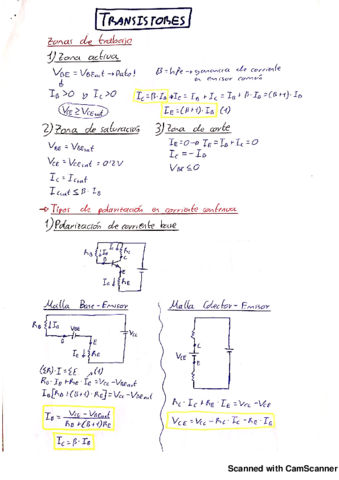 TRANSISTORES
Zonas de trabajo
1) Zona activa
V_BE = V_BEact → Dato!
β = hfe → ganancia de corriente en emisor común
I_B > 0 y I_C > 0
I_C = β·I_B → I_E = I_B + I_C = I_B + β·I_B = (β+1)·I_B
I_E = (β+1)·I_B (1)
2) Zona de saturación
V_BE = V_BEsat
V_CE = V_CEsat = 0'2V
I_C = I_Csat
I_Csat ≤ β·I_B
3) Zona de corte
I_E = 0 → I_E = I_B + I_C = 0
I_C = -I_B
V_BE ≤ 0
→ Tipos de polarización en corriente continua
1) Polarización de corriente base
R_B
I_B
I_C
R_C
C
B
E
I_E
R_E
Malla Base-Emisor
R_B
I_B
V_BE
B
E
I_E
R_E
V_CC
(ΣR)·I = ΣE
(1)
R_B·I_B + R_E·I_E = V_CC - V_BEact
I_B[R_B + (β+1)·R_E] = V_CC - V_BEact
I_B = (V_CC - V_BEact) / (R_B + (β+1)R_E)
I_C = β·I_B
Malla Colector-Emisor
C
V_CE
E
R_C·I_C + R_E·I_E = V_CC - V_CE
V_CE = V_CC - R_C·I_C - R_E·I_E
Scanned with CamScanner